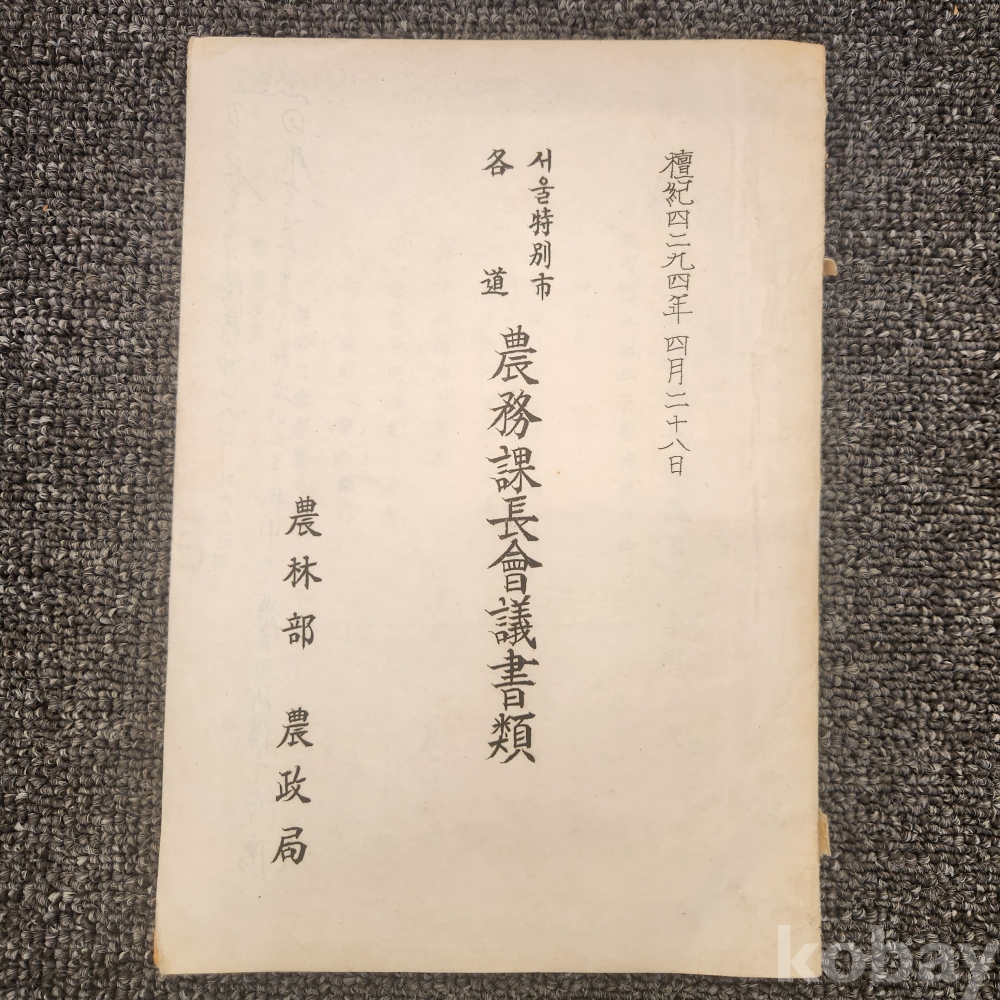 檀紀四二九四年 四月二十八日
서울特別市
各道
農務課長會議書類
農林部 農政局
kobay